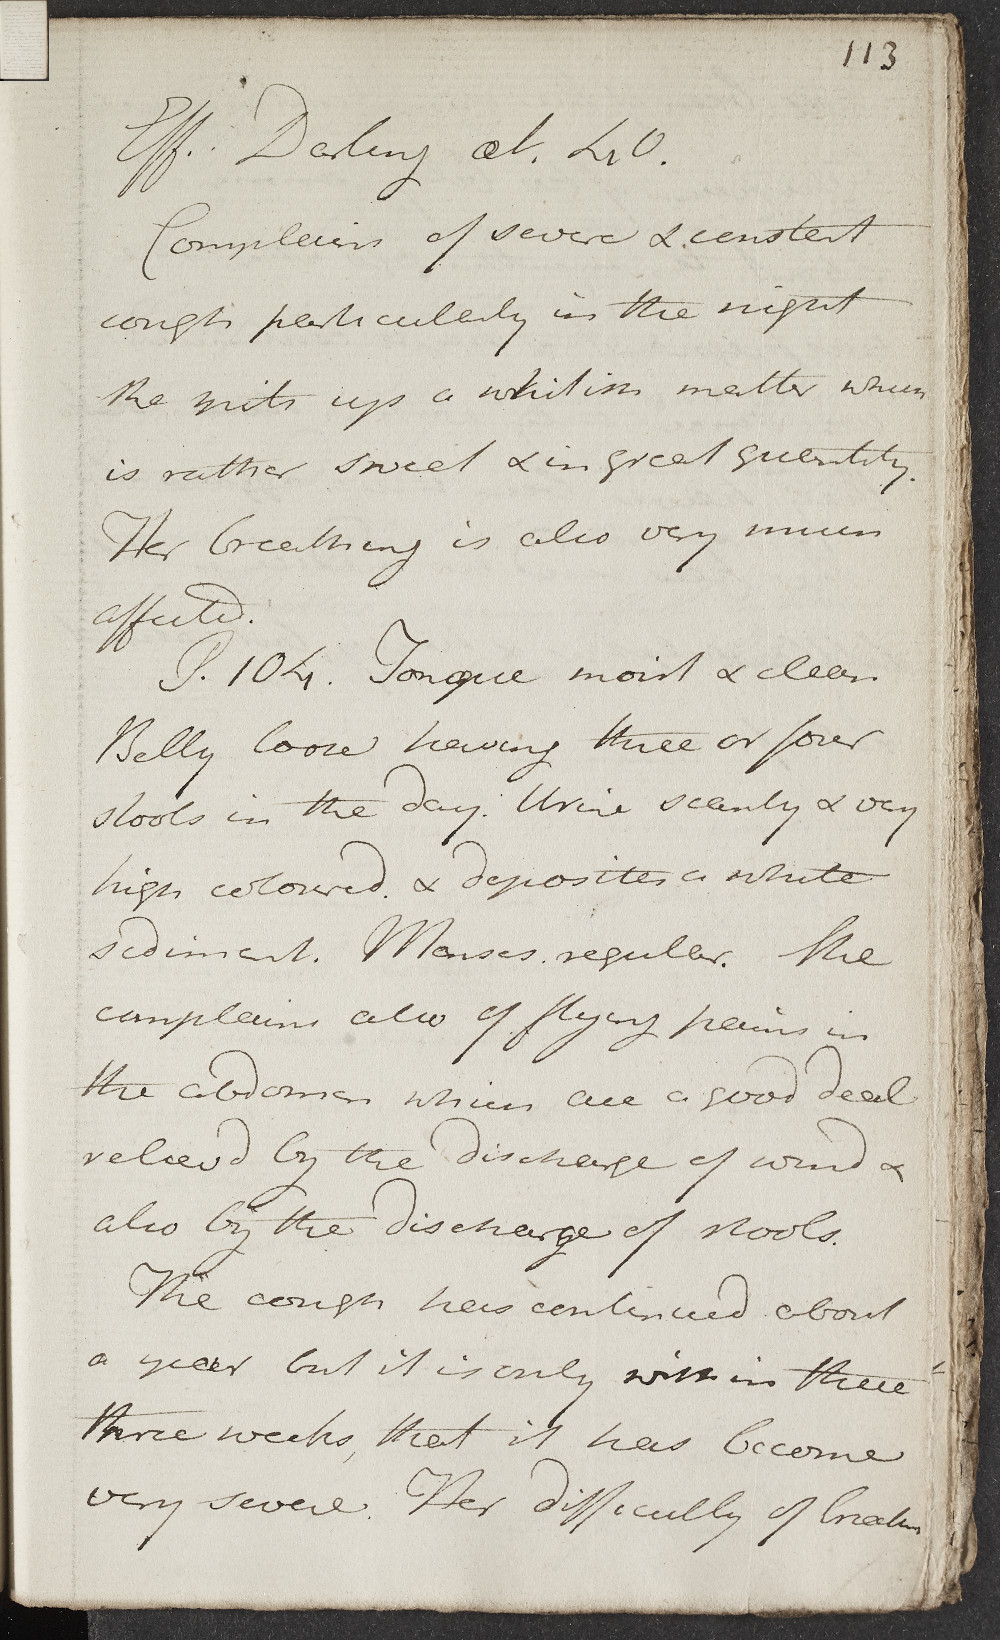 113
Eff. Darling æt. 40.
Complains of severe & constant
cough particularly in the night
She spits up a whitish matter which
is rather sweet & in great quantity.
Her breathing is also very much
affected.
P. 104. Tongue moist & clean
Belly loose having three or four
stools in the day. Urine scanty & very
high coloured. & deposites a white
sediment. Menses regular. She
complains also of flying pains in
the abdomen which are a good deal
relievd by the discharge of wind &
also by the discharge of stools.
The cough has continued about
a year but it is only within these
three weeks, that it has become
very severe. Her difficulty of breathing